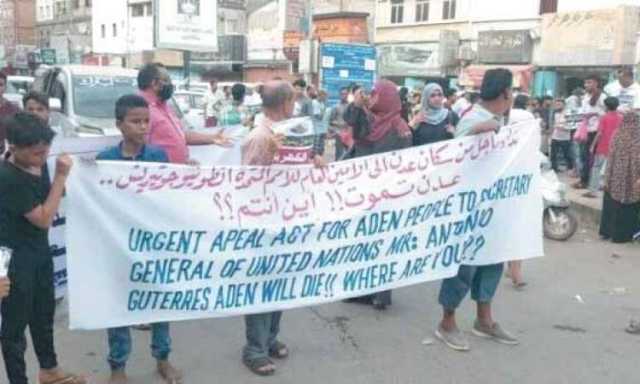 نداء عاجل من سكان عدن الى الامين العام للامم المتحدة انطونيو جوتيريتش ..
عدن تموت !! اين انتم ؟؟
URGENT APEAL A&T FOR ADEN PEOPLE TO SECRETARY
GENERAL OF UNITED NATIONS MR: ANTONIO
GUTERRES ADEN WILL DIE!! WHERE ARE YOU??